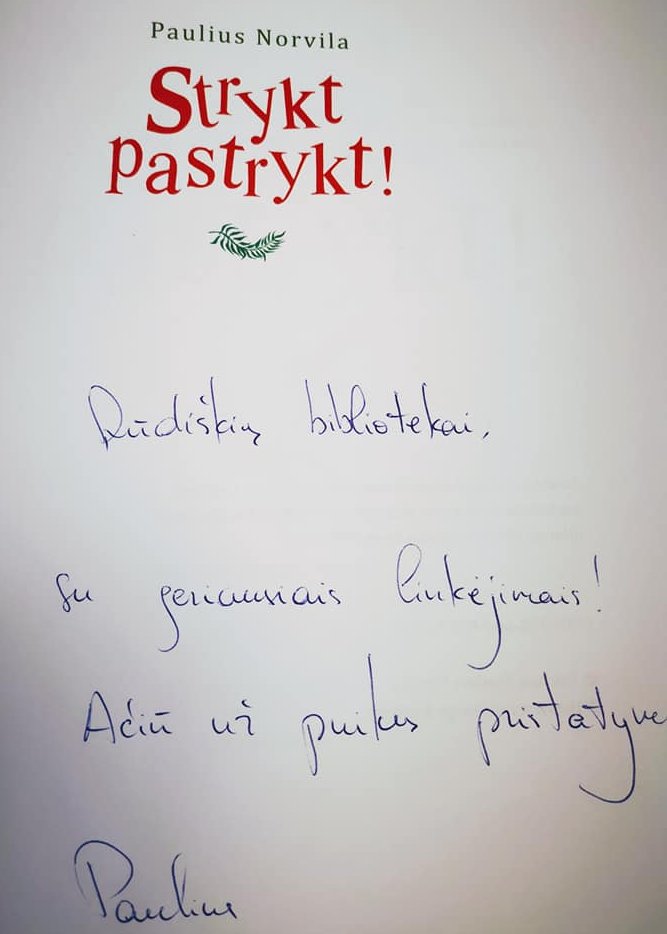 Paulius Norvila
Strykt
pastrykt!
Rūdiškių bibliotekai,
su geriausiais linkėjimais!
Ačiū už puikų
Paulius